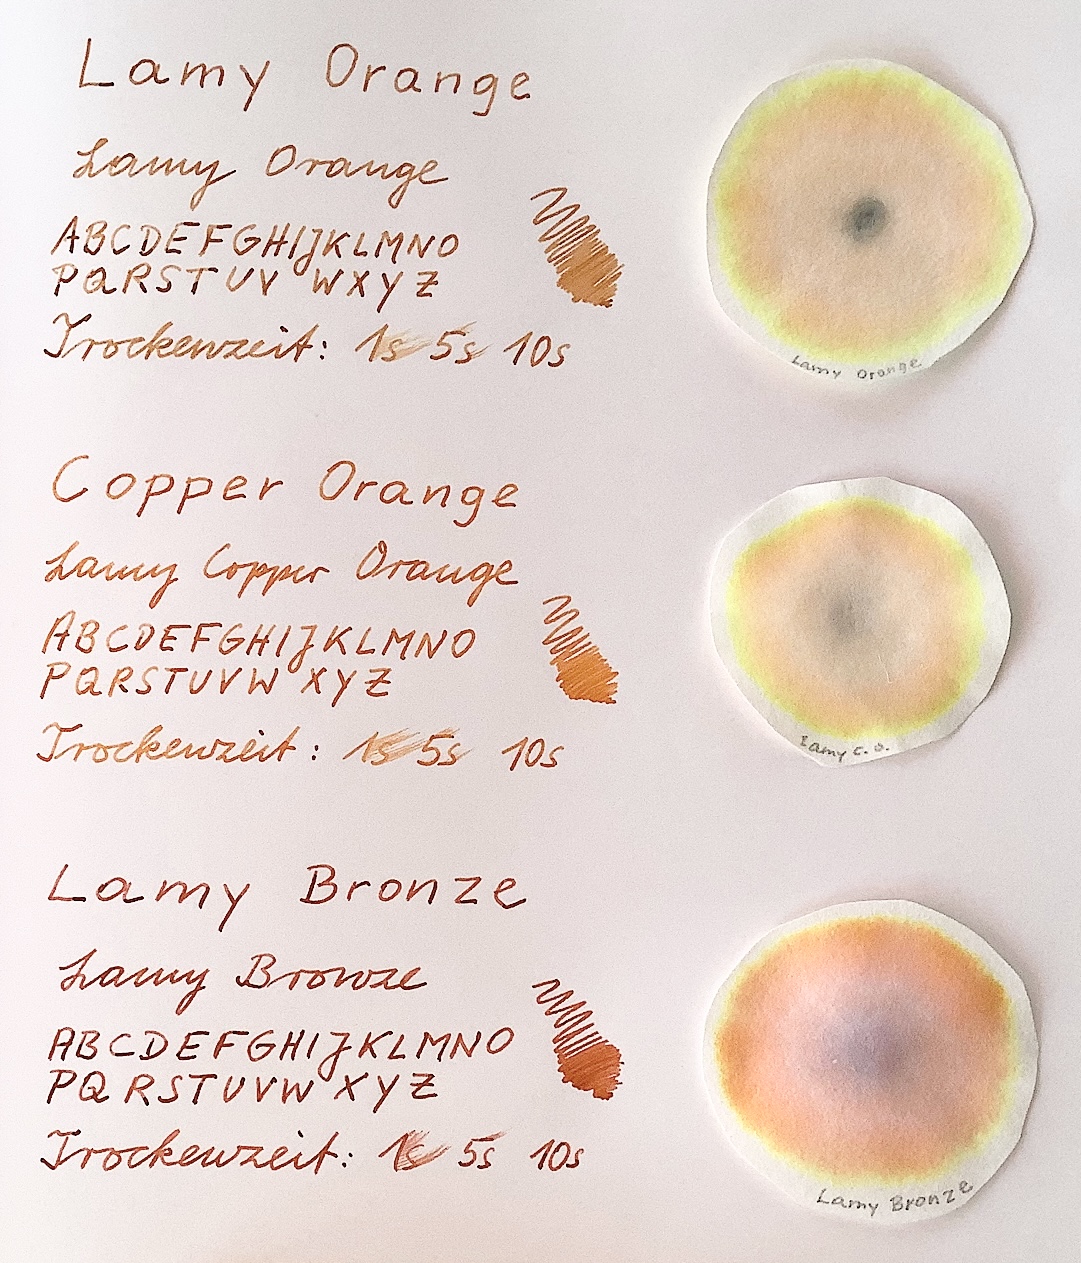 Lamy Orange
Lamy Orange
ABCDEFGHIJKLMNO
PQRSTUV WXYZ
Trockenzeit: 1s 5s 10s
Lamy Orange
Copper Orange
Lamy Copper Orange
ABCDEFGHIJKLMNO
PQRSTUVW XYZ
Trockenzeit: 1s 5s 10s
Lamy C. O.
Lamy Bronze
Lamy Bronze
ABCDEFGHIJKLMNO
PQRSTUVW XYZ
Trockenzeit: 1s 5s 10s
Lamy Bronze